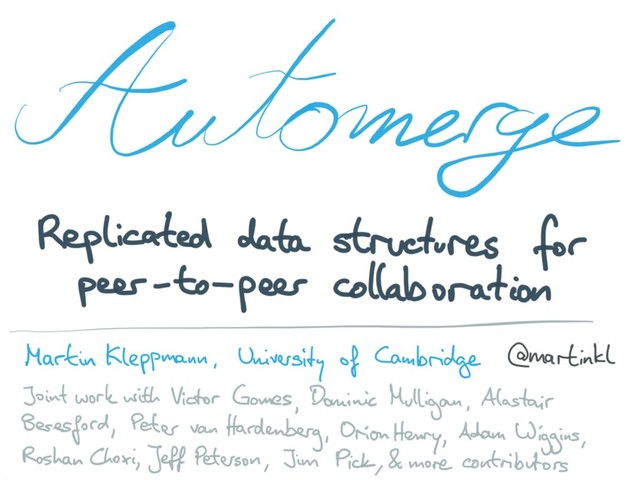 Automerge
Replicated data structures for
peer-to-peer collaboration
Martin Kleppmann, University of Cambridge @martinkl
Joint work with Victor Gomes, Dominic Mulligan, Alastair
Beresford, Peter van Hardenberg, Orion Henry, Adam Wiggins,
Roshan Choxi, Jeff Peterson, Jim Pick, & more contributors